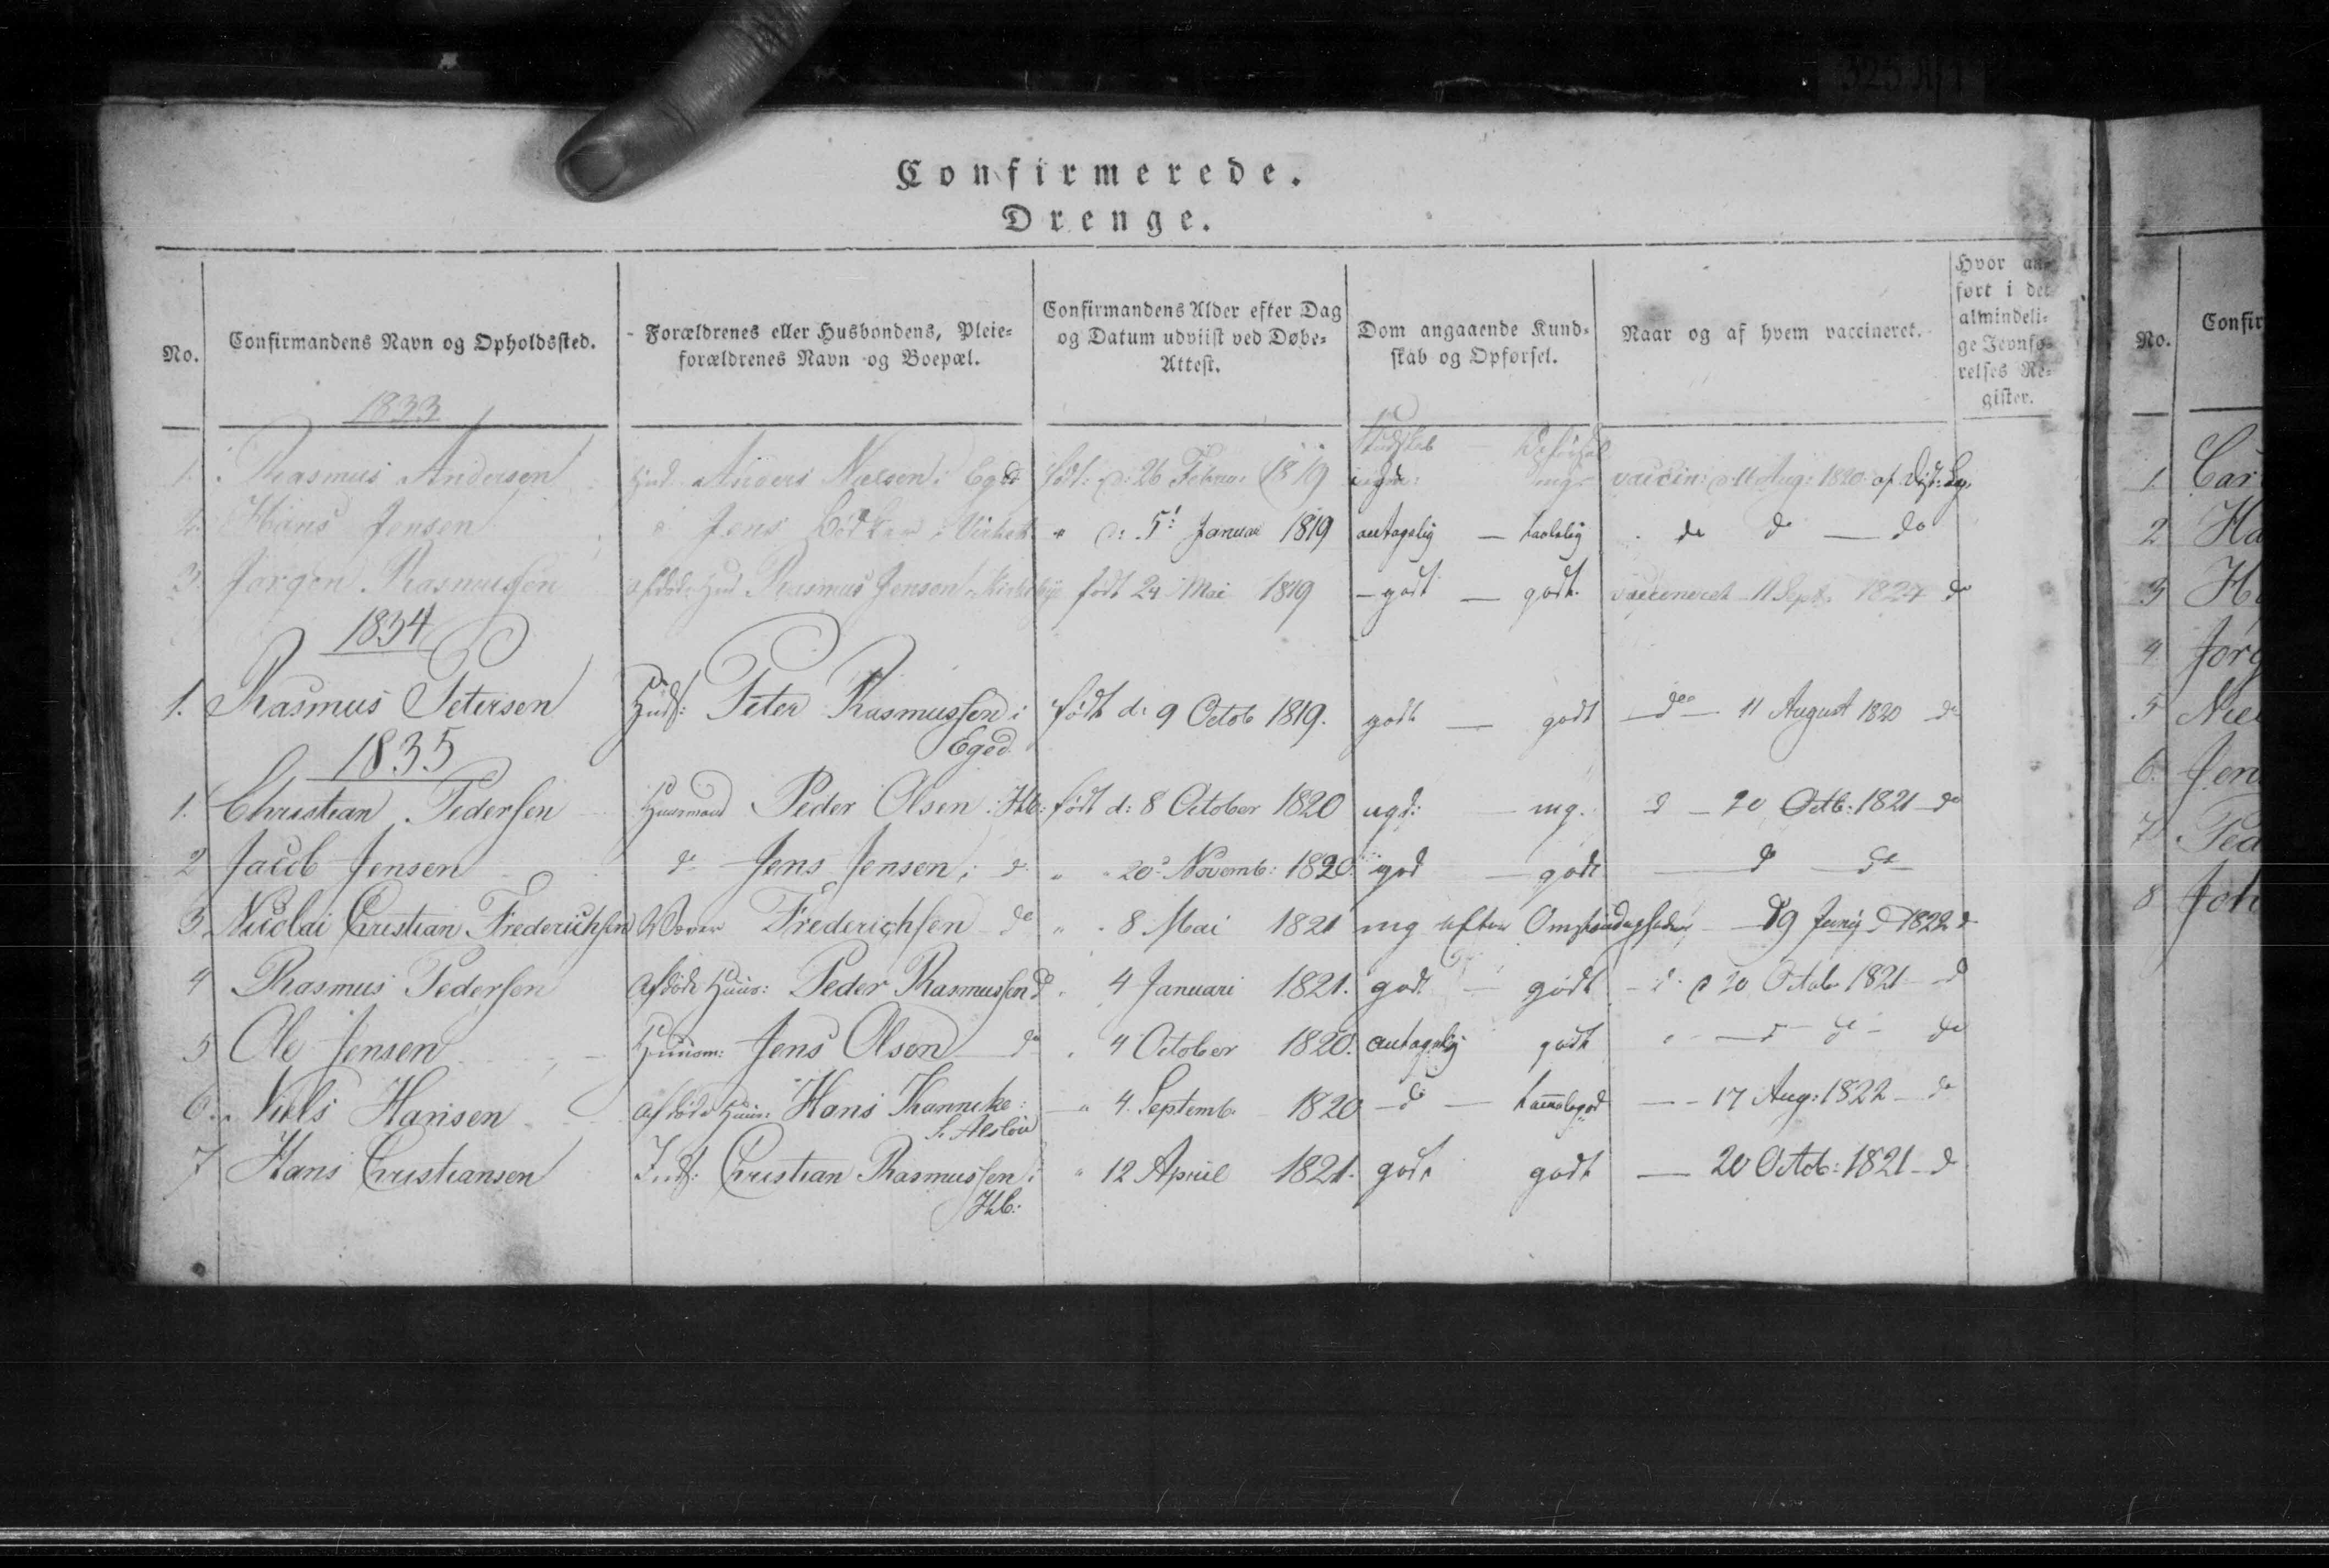 Confirmerede.
Drenge.
No. Confirmandens Navn og Opholdssted. Forældrenes eller Husbondens, Pleie-forældrenes Navn og Boepæl. Confirmandens Alder efter Dag og Datum udviist ved Døbe-Attest. Dom angaaende Kund-skab og Opførsel. Naar og af hvem vaccineret. Hvor an-ført i det almindeli-ge Jevnfø-relses Re-gister.
1833
1. Rasmus Andersen Anders Nielsen i født d: 26 Februar 1819 vaccin: d. 11 Aug: 1820 af Dist:
2. Hans Jensen Jens Bødker i d: 5 Januar 1819 antagelig — do do — do
3. Jørgen Rasmussen afdøde Rasmus Jensen født 24 Mai 1819 – godt — godt vaccineret 11 Sept. do
1834
1. Rasmus Petersen Peter Rasmussen i født d: 9 Octob 1819. godt — godt — do — 11 August 1820 do
Egød
1835
1. Christian Pedersen Huusmand Peder Olsen i født d: 8 October 1820 mg. d — 20 Octb: 1821 – do
2 Jacob Jensen do Jens Jensen i do " " 20 Novemb: 1820. god — godt — do do
3. Nicolai Christian Frederichsen Frederichsen do " " 8 Mai 1821 mg efter 19 1822 d
4 Rasmus Pedersen afdøde Huus: Peder Rasmussen d " 4 Januari 1821. god — godt – d d 20 Octobr 1821 – d
5 Ole Jensen Huusm: Jens Olsen do " 4 October 1820. antagelig godt " — d do do
6. Niels Hansen afdøde Huus: Hans " 4. Septemb. 1820 – do — — 17 Aug: 1822 – do
7 Hans Christiansen Christian Rasmussen i " 12 April 1821. godt godt — 20 Octob: 1821 – d
No. Confir
1. Car
2 Ha
3 H
4 Jørg
5 Nie
6. Jen
7 Ped
8 Joh